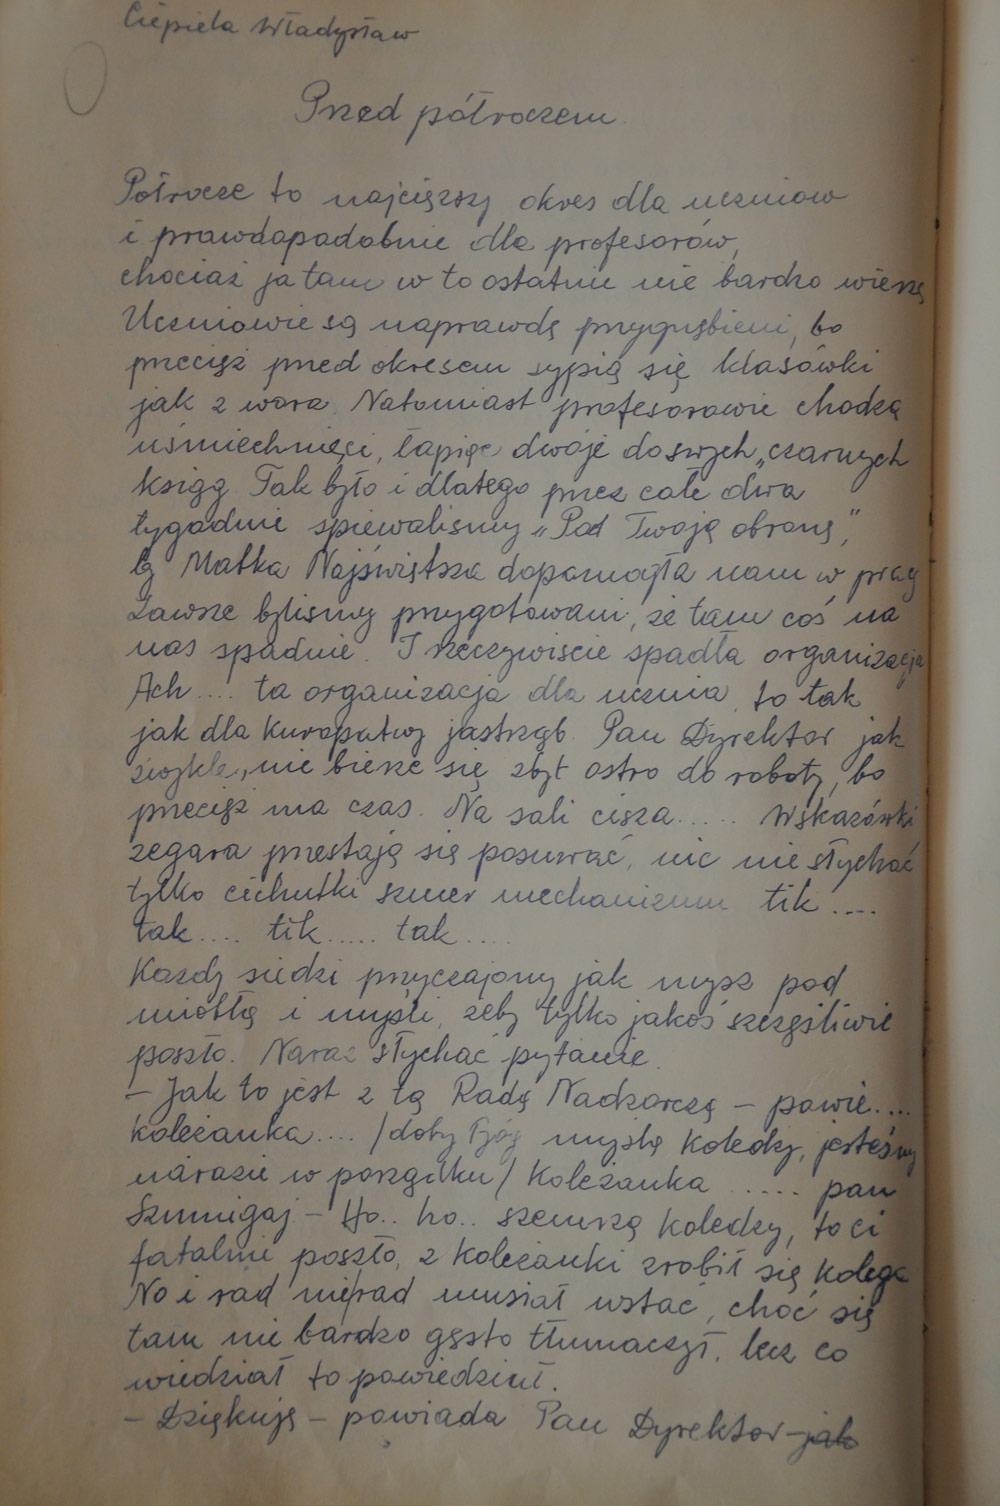 Ciepiela Władysław
Przed półroczem.
Półrocze to najcięższy okres dla uczniow
i prawdopadobnie dla profesorów,
chociaż ja tam w to ostatnie nie bardzo wierzę
Uczniowie są naprawdę przygnębieni, bo
przecięż przed okresem sypią się klasówki
jak z wora. Natomiast profesorowie chodzą
uśmiechnięci, łapiąc dwóje do swych „czarnych
ksiąg. Tak było i dlatego przez całe dwa
tygodnie spiewalismy „Pod Twoją obronę,”
by Matka Najświętsza dopomogła nam w pracy
Zawsze bylismy przygotowani, że tam coś na
nas spadnie. I rzeczywiscie spadła organizacja
Ach.... ta organizacja dla ucznia to tak
jak dla kuropatwy jastrząb. Pan Dyrektor jak
zwykle, nie bierze się zbyt ostro do roboty, bo
przecięż ma czas. Na sali cisza..... Wskazówki
zegara przestają się posuwać, nic nie słychać
tylko cichutki szmer mechanizmu tik....
tak.... tik..... tak....
Kazdy siedzi przyczajony jak mysz pod
miotłą i myśli, żeby tylko jakoś szczęśliwie
poszło. Naraz słychać pytanie.
– Jak to jest z tą Radą Nadzorczą – powie....
koleżanka.... /doby Bóg myślą koledzy, jesteśmy
narazie w porządku/ Koleżanka ..... pan
Szmigaj – Ho.. ho.. szemrzą koledzy, to ci
fatalnie poszło, z koleżanki zrobił się kolega
No i rad nie/rad musiał wstać, choć się
tam nie bardzo gęsto tłumaczył, lecz co
wiedział to powiedział.
– Dziękuję – powiada Pan Dyrektor – jak